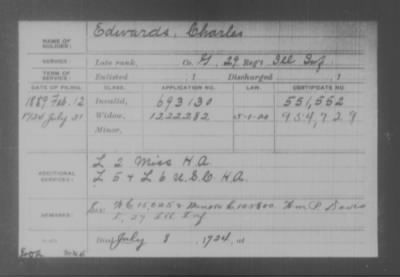 NAME OF SOLDIER: Edwards, Charles
SERVICE: Late rank, Co. G, 29 Reg't Ill Inf
TERM OF SERVICE: Enlisted , 1 Discharged , 1
DATE OF FILING. CLASS. APPLICATION NO. LAW. CERTIFICATE NO.
1889 Feb. 12 Invalid, 693130 551,552
1924 July 21 Widow, 1222282 5-1-20 954,729
Minor,
ADDITIONAL SERVICES: L 2 Miss H.A.
L 5 + L 6 U.S.C. H.A.
REMARKS: Wm P. Davis
Ill Inf
Died July 8, 1924, at